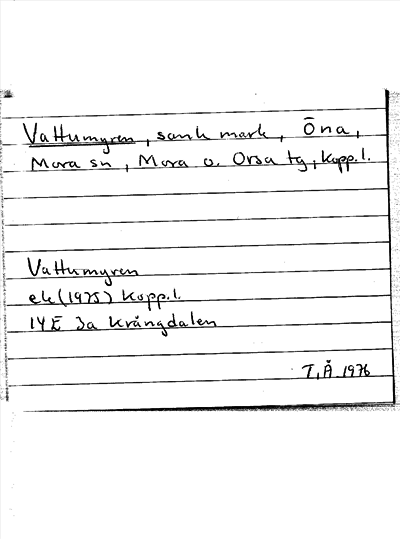 Vattumyren, sank mark, Öna,
Mora sn, Mora o. Orsa tg, Kopp.l.
Vattumyren
ek (1975) Kopp.l.
14E 3a Krångdalen
T, Å 1976